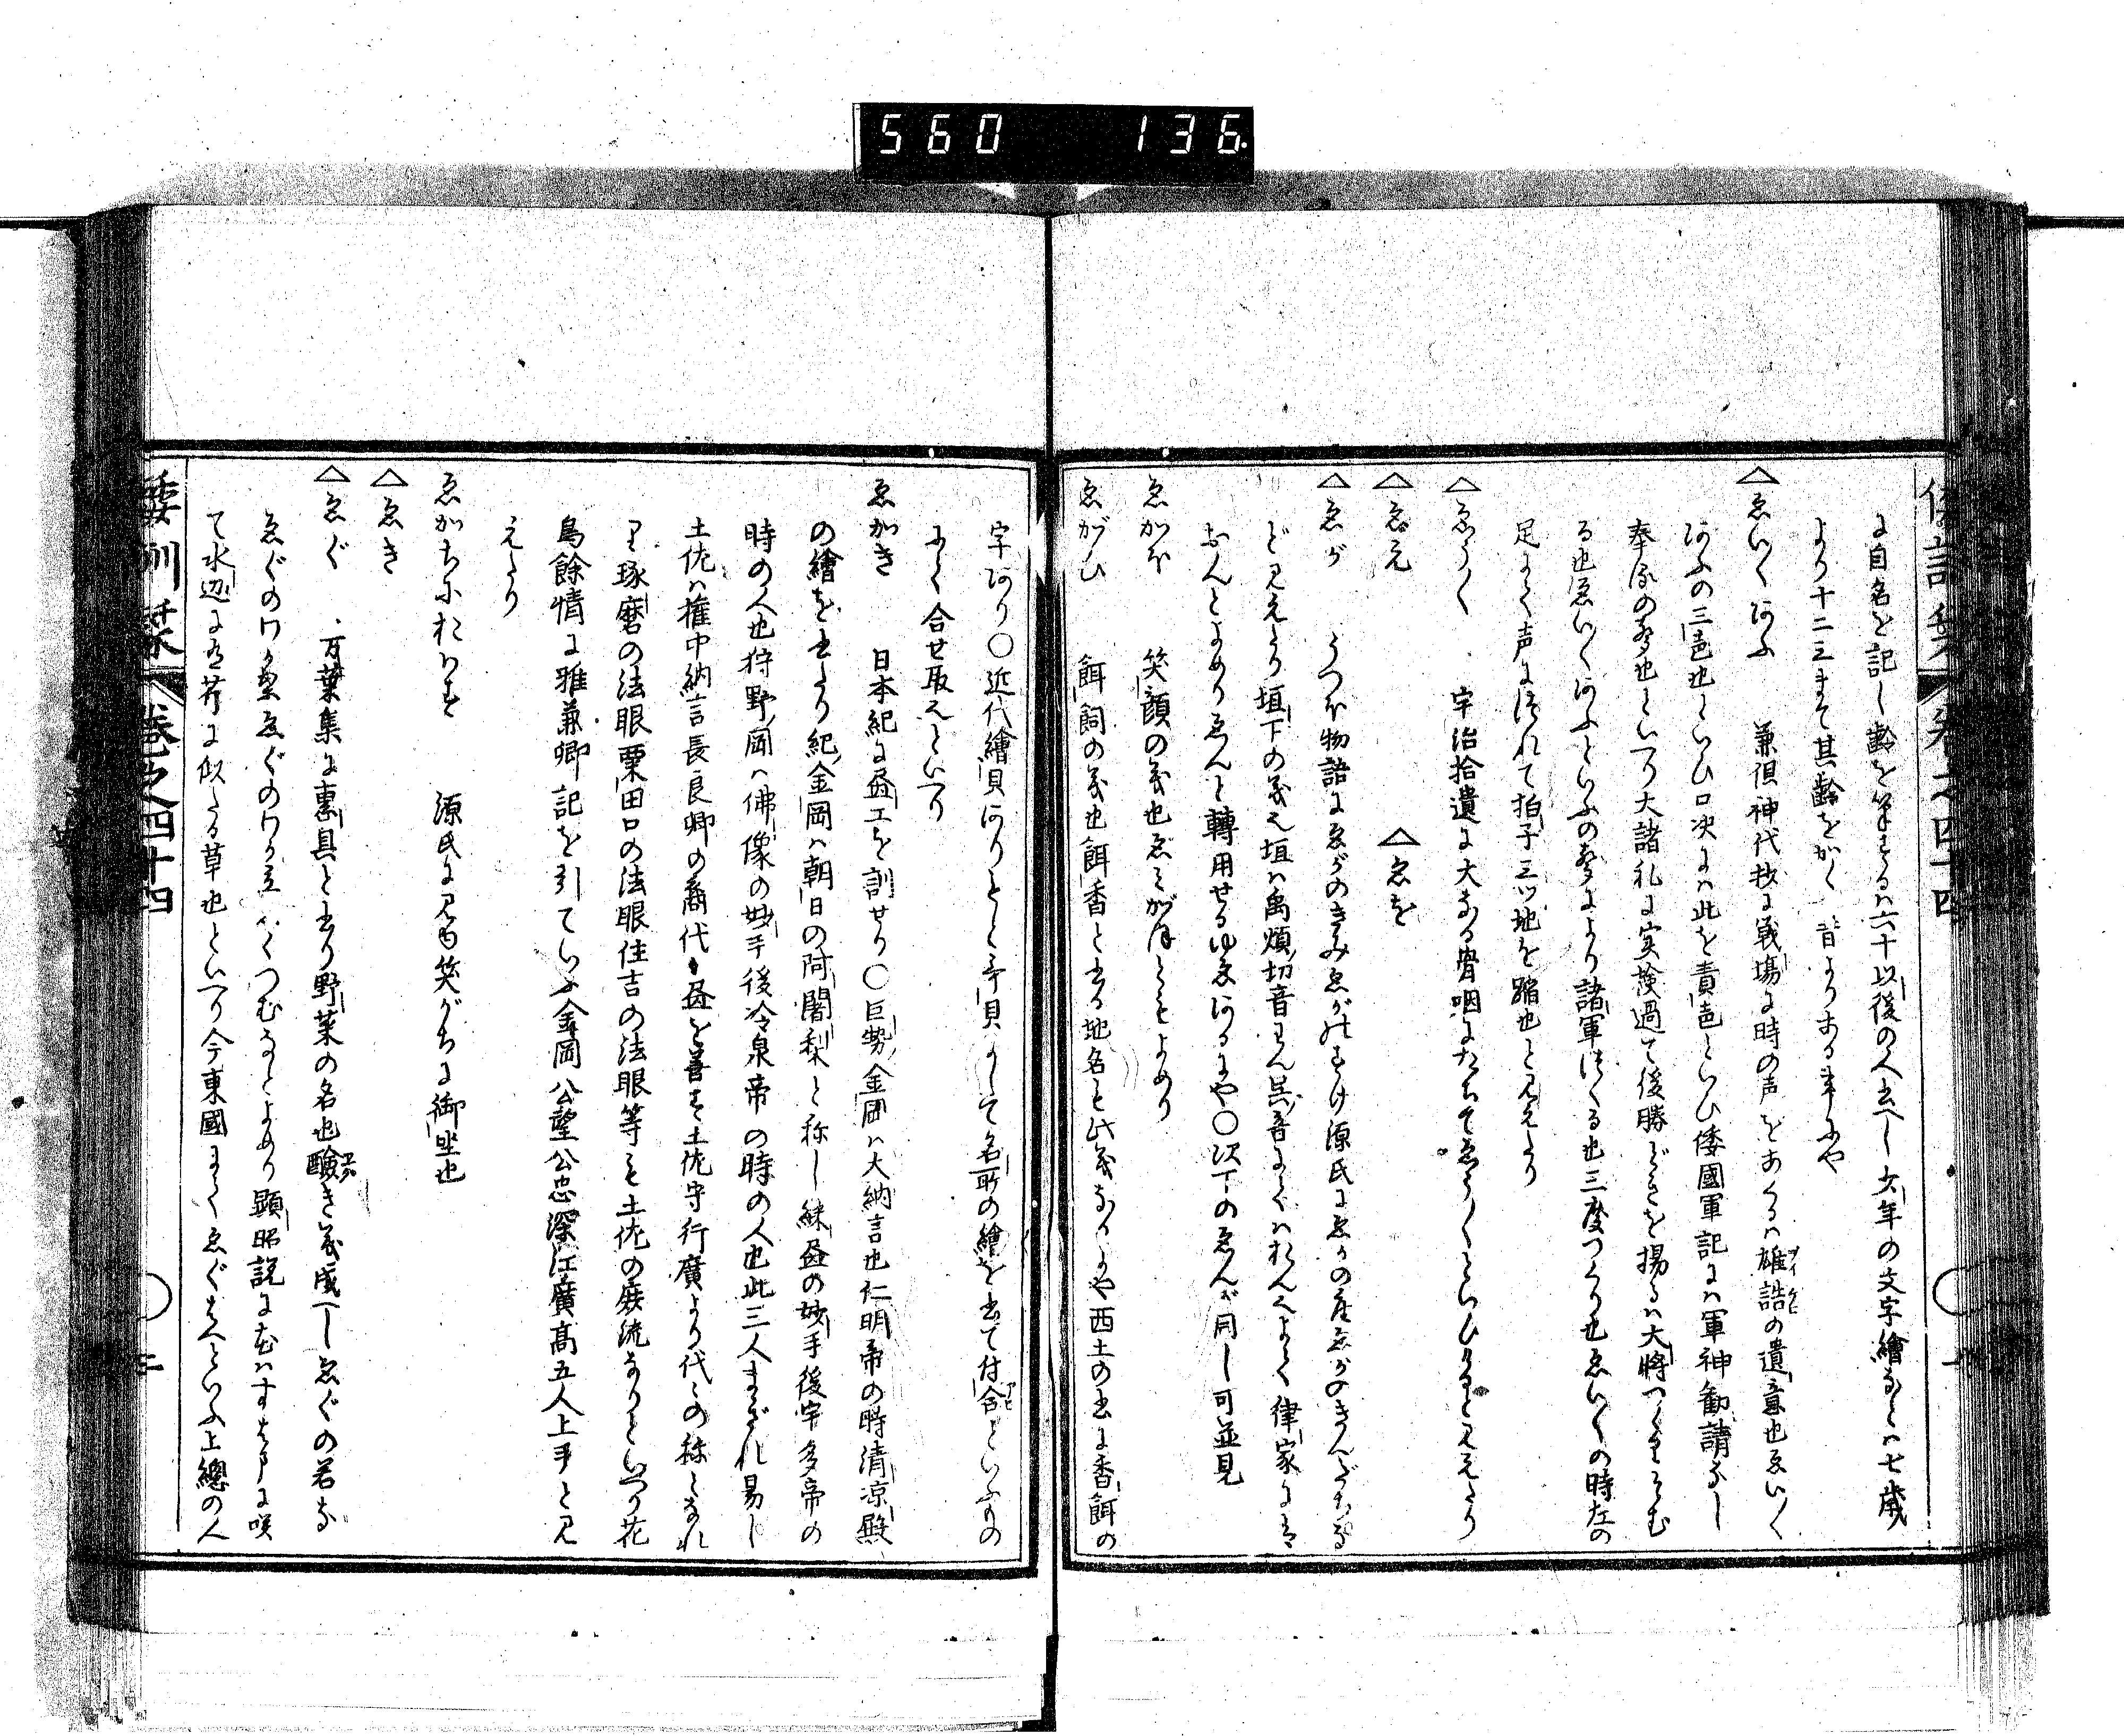 560 136
に自名を記し齢を筆するハ六十以後の人書へし 少年の文字繪なとハ七歳
より十二三まて其齢をかく 昔よりある事にや
△ゑいく おふ 兼倶神代抄に戦場に時の声をあくるハ雄誥の遺意也ゑいく
おふの三色也といひ口决にハ此を責色といひ倭國軍記にハ軍神勧請なし
奉るの声也といへり大諸礼に実撿過て後勝どきを揚るハ大將
る也ゑいくおふといふの声により諸軍つくる也三度つくり也ゑいくの時左の
足にて声につれて拍子三ツ地を踏也と見えたり
△ゑうく 宇治拾遺に大なる骨咽にたちてゑうくといひけると見えたり
△ゑえ △ゑを
△ゑが うつほ物語にゑがのきみ 源氏にゑかの座ゑがのきんだちなる
ど見えたり垣下の義也垣ハ禹煩切音
おんとよめりゑんと轉用せるゆゑあるにや〇次丁のゑんが同し可並見
ゑがほ 笑顔の義也ゑみがほともよめり
ゑがひ 餌飼の義也餌香と書る地名も此義なりにや西土の書に香餌の
字あり〇近代繪貝ありとて哥貝にて名所の繪を書て付合といふもの
にて合せ取といへり
ゑがき 日本紀に畫工を訓せり〇巨勢金岡ハ大納言也仁明帝の時清凉殿
の繪を書たり紀金岡ハ朝日の阿闍梨と称し繍畫の妙手後宇多帝の
時の人也狩野岡ハ佛像の妙手後冷泉帝の時の人也此三人まぎれ易し
土佐ハ權中納言長良卿の裔代〻畫を善す土佐守行廣より代〻の称となれ
り琢磨の法眼粟田口の法眼住吉の法眼等も土佐の庶流なりといへり花
鳥餘情に雅兼卿記を引ていふ金岡公望公忠深江廣高五人上手と見
えたり
ゑがちにおはす 源氏に見ゆ笑がちに御坐也
△ゑき
△ゑぐ 万葉集に恵具と書り野菜の名也醶き義成へしゑぐの若な
ゑぐのわか葉ゑぐのわか立などつむなどよめり顕昭説に
て水辺に生芹に似たる草也といへり今東國にてゑぐといふ上總の人
倭訓栞 巻之四十四
倭訓栞 巻之四十四 二